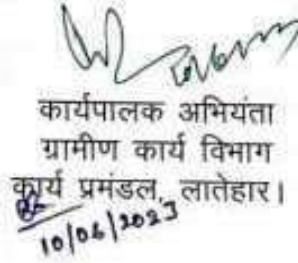 कार्यपालक अभियंता
ग्रामीण कार्य विभाग
कार्य प्रमंडल, लातेहार।
10/06/2023